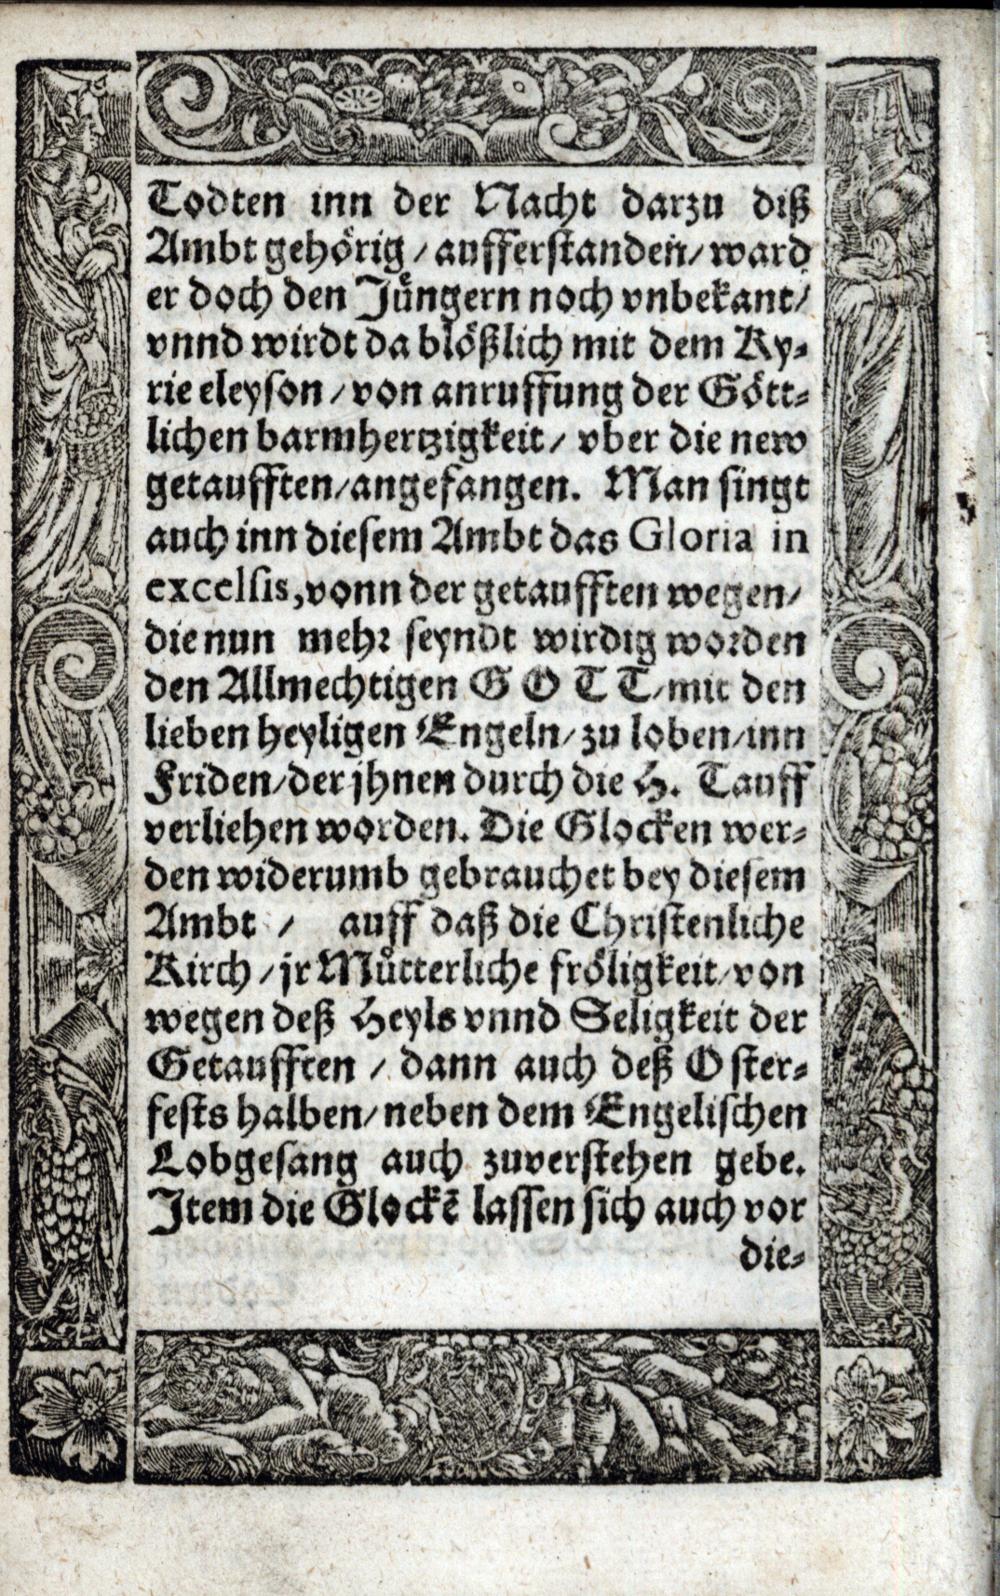 Todten inn der Nacht darzu diß
Ambt gehörig / aufferstanden / ward
er doch den Jüngern noch vnbekant /
vnnd wirdt da blößlich mit dem Ky-
rie eleyson / von anruffung der Gött-
lichen barmhertzigkeit / vber die new
getaufften / angefangen. Man singt
auch inn diesem Ambt das Gloria in
excelsis, vonn der getaufften wegen /
die nun mehr seyndt wirdig worden
den Allmechtigen GOTT / mit den
lieben heyligen Engeln / zu loben / inn
Friden / der jhnen durch die H. Tauff
verliehen worden. Die Glocken wer-
den widerumb gebrauchet bey diesem
Ambt / auff daß die Christenliche
Kirch / jr Mütterliche fröligkeit / von
wegen deß Heyls vnnd Seligkeit der
Getaufften / dann auch deß Oster-
fests halben / neben dem Engelischen
Lobgesang auch zuverstehen gebe.
Item die Glockẽ lassen sich auch vor
die-